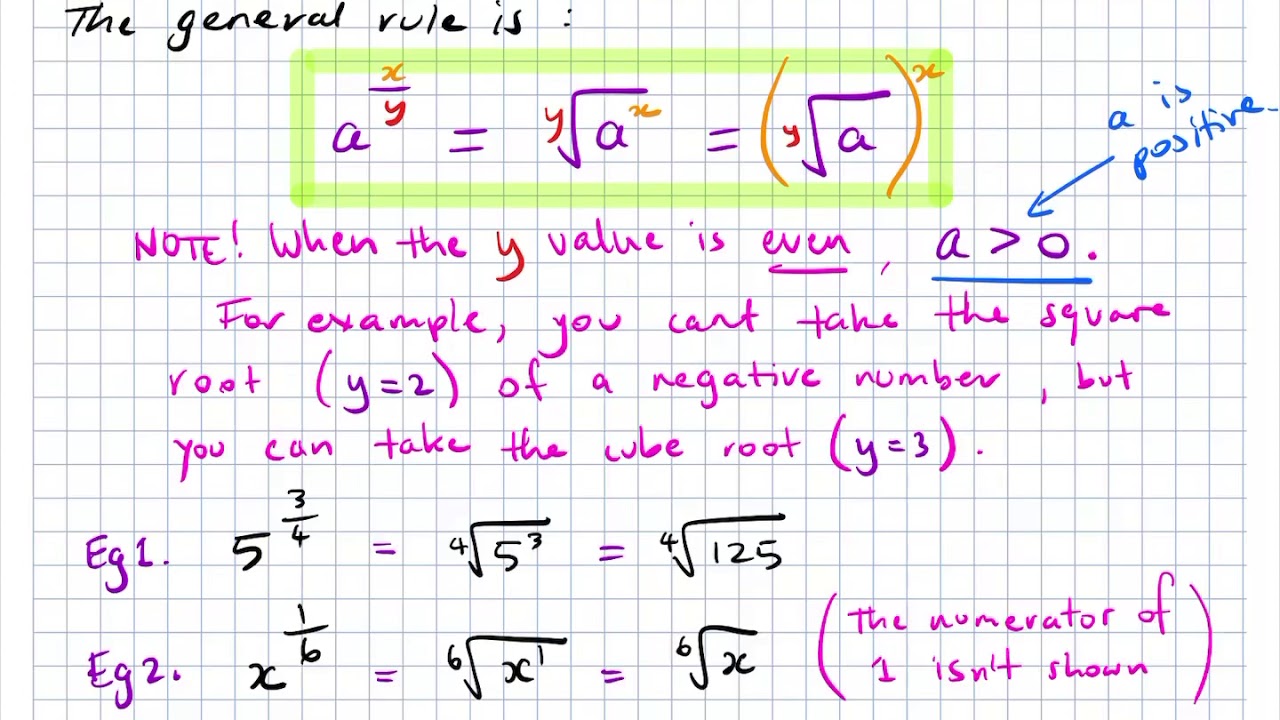 The general rule is :
a^(x/y) = ʸ√(a^x) = (ʸ√a)^x
a is
positive.
NOTE! When the y value is even, a > 0.
For example, you cant take the square
root (y=2) of a negative number, but
you can take the cube root (y=3).
Eg1. 5^(3/4) = ⁴√(5³) = ⁴√125
Eg2. x^(1/6) = ⁶√(x¹) = ⁶√x (The numerator of
1 isn't shown)